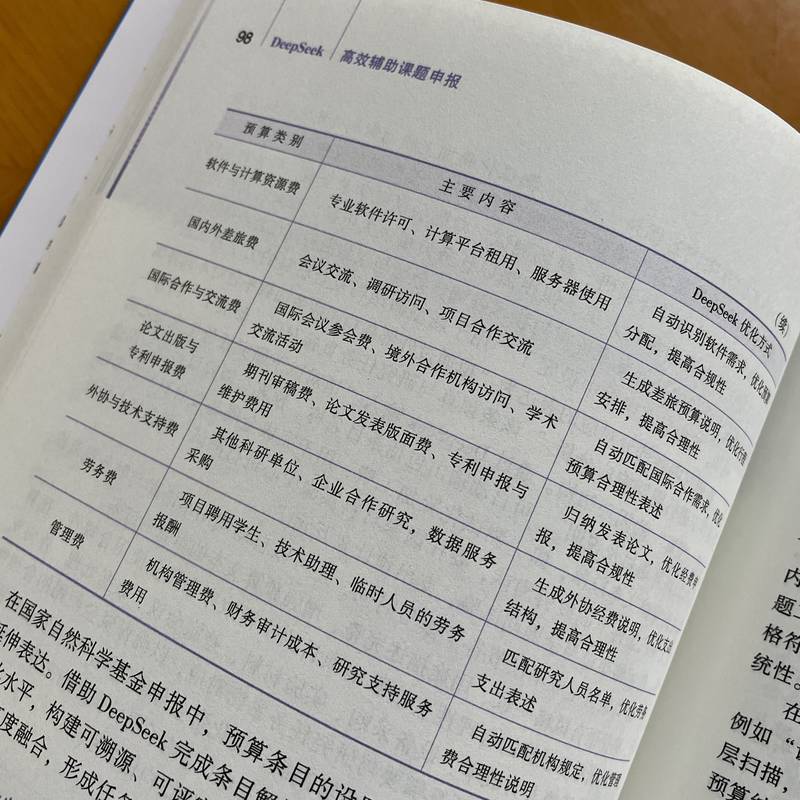 98
DeepSeek
高效辅助课题申报
（续）
预算类别
主要内容
DeepSeek 优化方式
软件与计算资源费
专业软件许可、计算平台租用、服务器使用
自动识别软件需求，优化
分配，提高合规性
国内外差旅费
会议交流、调研访问、项目合作交流
生成差旅预算说明，优化
安排，提高合理性
国际合作与交流费
国际会议参会费、境外合作机构访问、学术
交流活动
自动匹配国际合作需求，优化
预算合理性表述
论文出版与
专利申报费
期刊审稿费、论文发表版面费、专利申报与
维护费用
归纳发表论文，优化经费
报，提高合规性
外协与技术支持费
其他科研单位、企业合作研究，数据服务
采购
生成外协经费说明，优化支出
结构，提高合理性
劳务费
项目聘用学生、技术助理、临时人员的劳务
报酬
匹配研究人员名单，优化劳务
支出表述
管理费
机构管理费、财务审计成本、研究支持服务
费用
自动匹配机构规定，优化管理
费合理性说明
在国家自然科学基金申报中，预算条目的设
延伸表达。借助 DeepSeek 完成条目解
水平，构建可溯源、可评
度融合，形成任
内
题
格符
统性。
在
例如“
层扫描，
预算